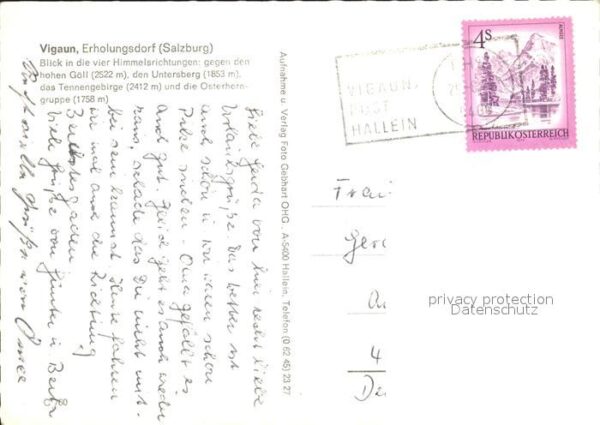 Vigaun, Erholungsdorf (Salzburg)
Blick in die vier Himmelsrichtungen: gegen den
hohen Göll (2522 m), den Untersberg (1853 m),
das Tennengebirge (2412 m) und die Osterhorn-
gruppe (1758 m)
Aufnahme u. Verlag Foto Gebhart OHG., A-5400 Hallein, Telefon (0 62 45) 23 27
VIGAUN,
POST
HALLEIN
4s
ALMSEE
REPUBLIK ÖSTERREICH
Liebe Gerda von hier recht liebe
Urlaubsgrüße. Das Wetter ist
auch schön
Oma gefällt es
auch gut. Heidi geht es auch wieder
schade das Du nicht mit
bei sein kannst. Heute fahren
wir mal auch die Richtung
Berchtesgaden
Viele Grüße von Günter u.
viele Grüße von
Frau
Ger
4
privacy protection
Datenschutz